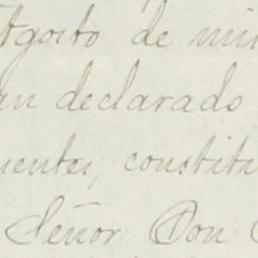 Agosto de mi
an declarado
uenta, constitu
Señor Don